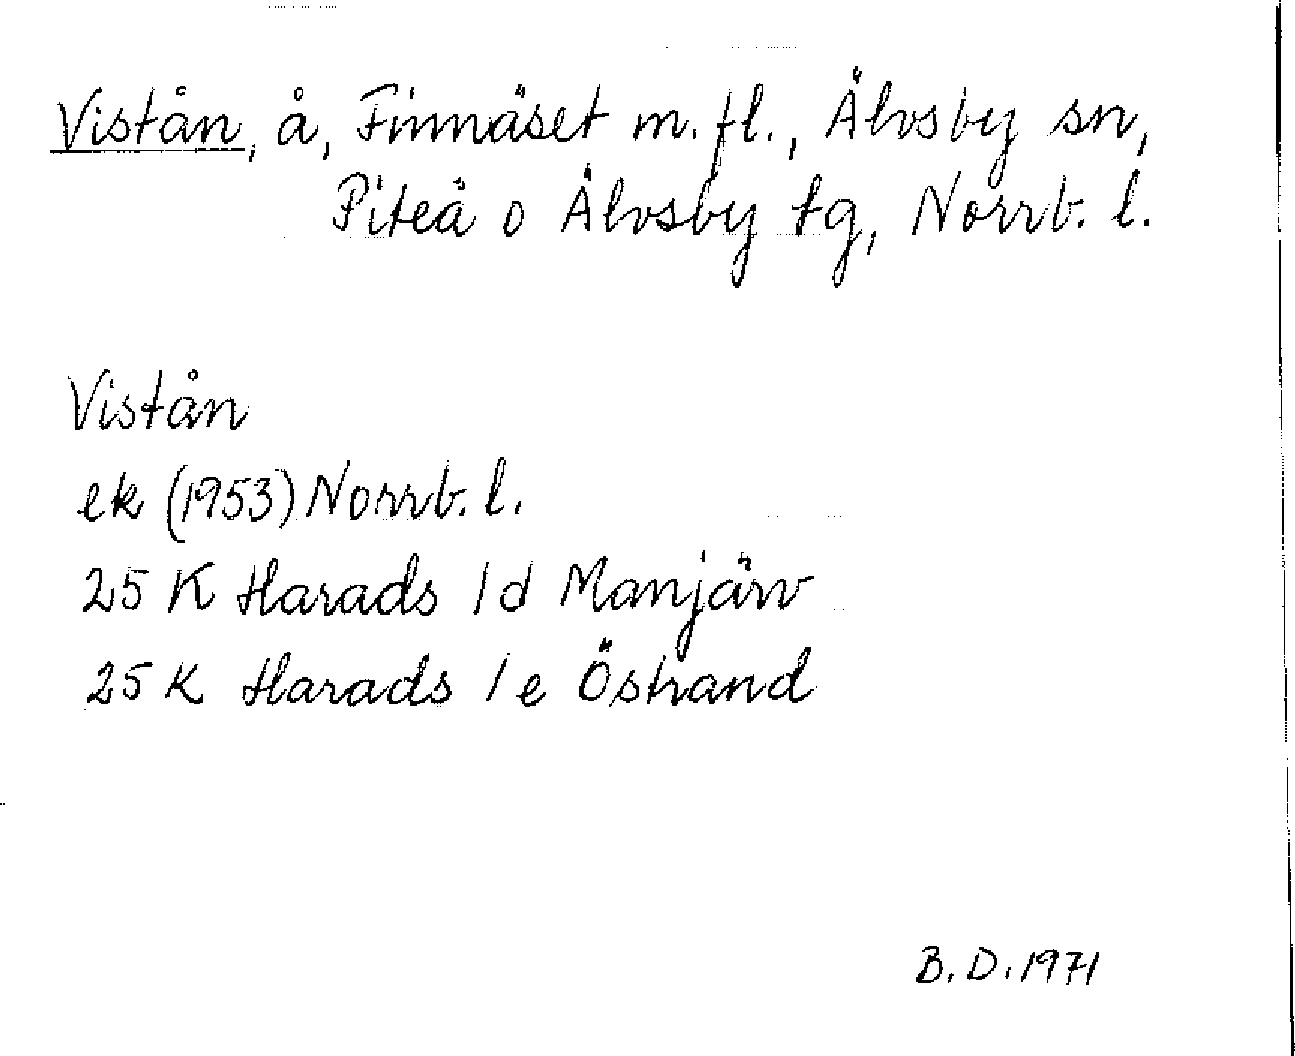 Vistån, å, Finnäset m. fl., Älvsby sn,
Piteå o Älvsby tg, Norrb. l.
Vistån
ek (1953) Norrb. l.
25 K Harads 1 d Manjärv
25 K Harads 1 e Östrand
B. D. 1971